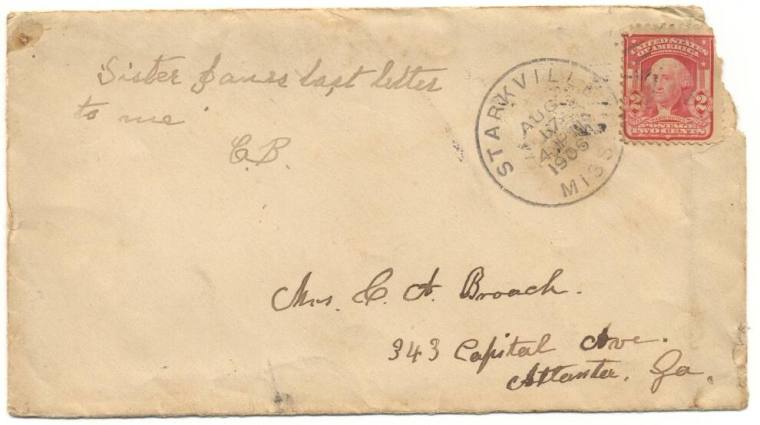 Sister Janes last letter
to me
C.B.
STARKVILLE
MISS
AUG
17
4 PM
1906
UNITED STATES
OF AMERICA
2 2
POSTAGE
TWO CENTS
Mrs. C. A. Broach.
343 Capital Ave.
Atlanta, Ga.